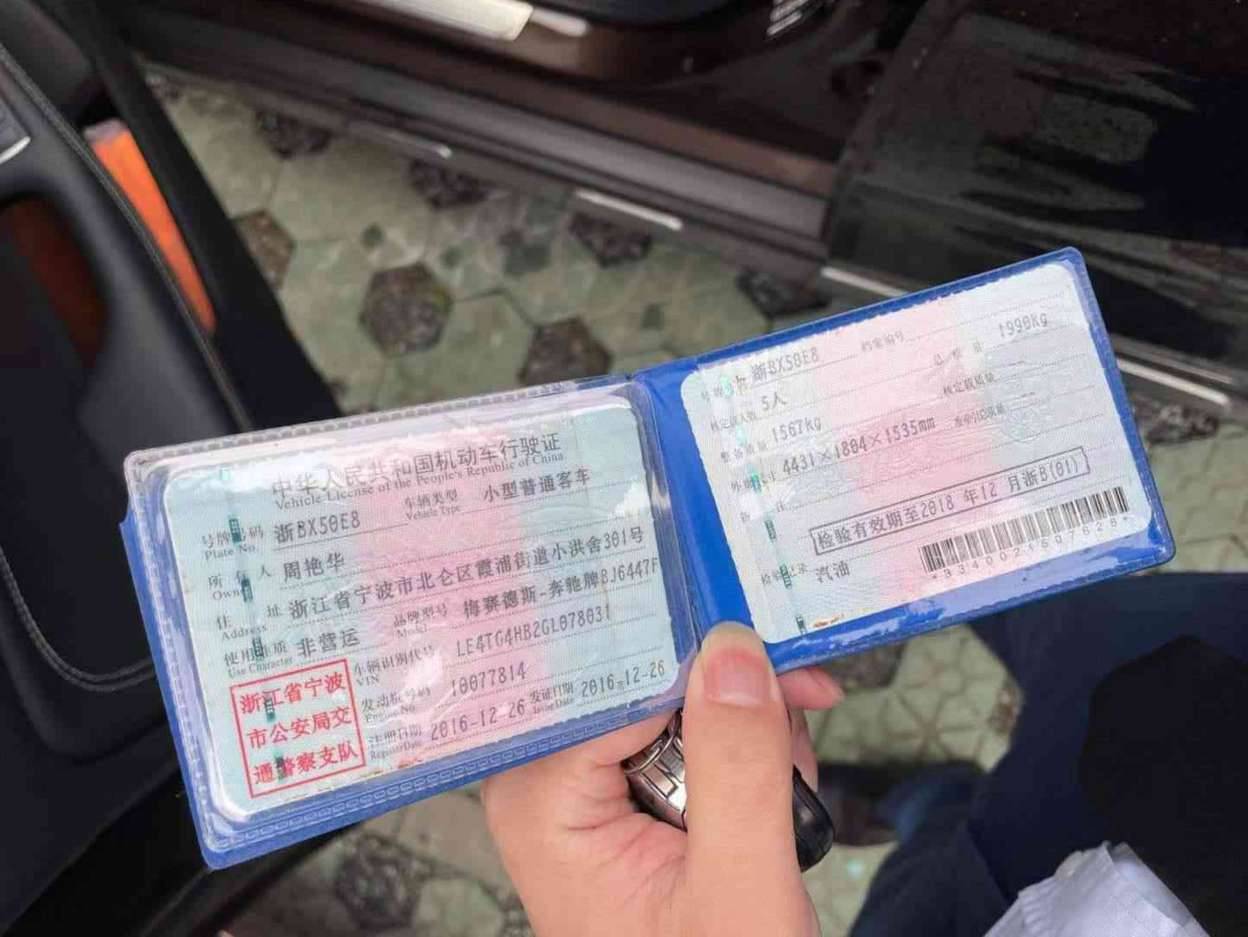 中华人民共和国机动车行驶证
Vehicle License of the People's Republic of China
号牌号码 浙BX50E8 车辆类型 小型普通客车
Plate No. Vehicle Type
所有人 周艳华
Owner
住址 浙江省宁波市北仑区霞浦街道小洪舍301号
Address
使用性质 非营运 品牌型号 梅赛德斯-奔驰牌BJ6447F
Use Character Model
车辆识别代号 LE4TG4HB2GL078031
VIN
发动机号码 10077814
Engine No.
注册日期 2016-12-26 发证日期 2016-12-26
Register Date Issue Date
浙江省宁波
市公安局交
通警察支队
号牌号码 浙BX50E8 档案编号
核定载人数 5人 总质量 1990kg
整备质量 1567kg 核定载质量
外廓尺寸 4431×1804×1535mm 准牵引总质量
备注
检验有效期至2018 年12 月浙B(01)
检验记录 汽油